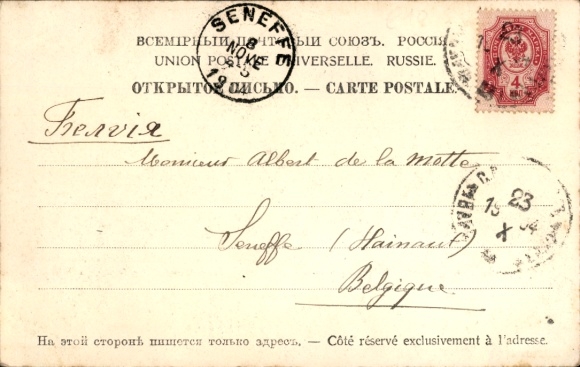 SENEFFE
8
NOVE
1904
ВСЕМІРНЫЙ ПОЧТОВЫЙ СОЮЗЪ. РОССІЯ
UNION POSTALE UNIVERSELLE. RUSSIE.
ОТКРЫТОЕ ПИСЬМО. — CARTE POSTALE.
4
Белгія
Monsieur Albert de la Motte
23
X
Seneffe (Hainaut)
Belgique
На этой сторонѣ пишется только адресъ. — Côté réservé exclusivement à l'adresse.